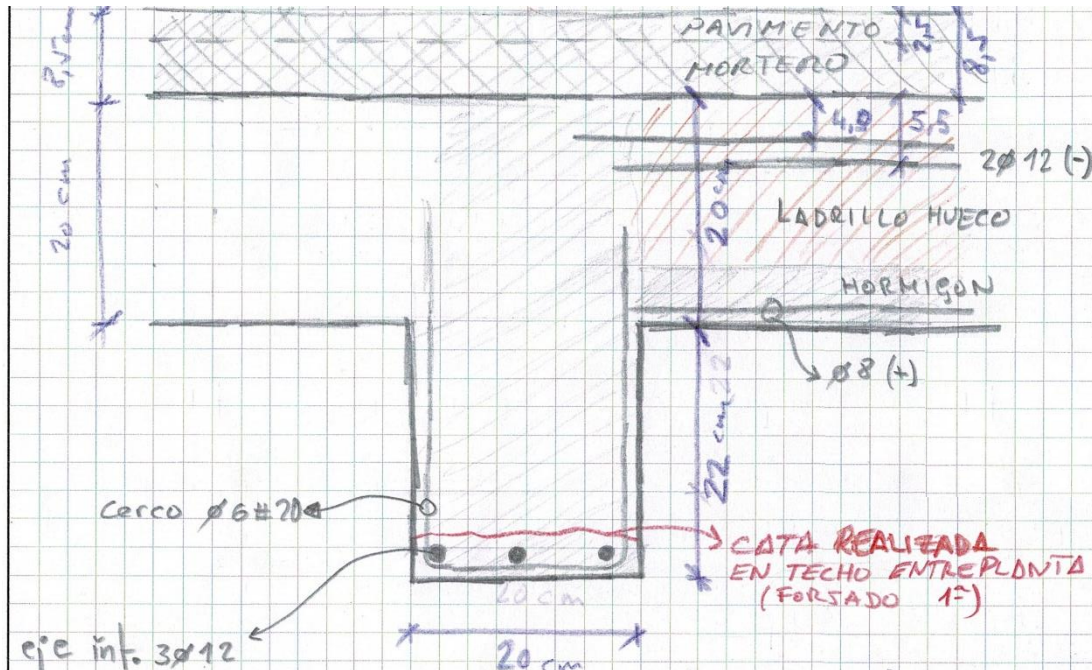 PAVIMENTO
MORTERO
2,5
8,5
8,5cm
4,9
5,5
2ø12 (-)
20 cm
20 cm
LADRILLO HUECO
HORMIGON
ø8 (+)
22 cm
22
cerco ø6#20
CATA REALIZADA
EN TECHO ENTREPLANTA
(FORJADO 1º)
20 cm
eje inf. 3ø12
20 cm